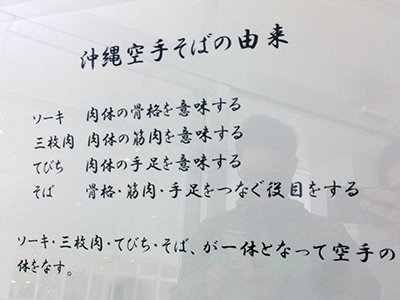 沖縄空手そばの由来
ソーキ 肉体の骨格を意味する
三枚肉 肉体の筋肉を意味する
てびち 肉体の手足を意味する
そば 骨格・筋肉・手足をつなぐ役目をする
ソーキ・三枚肉・てびち・そば、が一体となって空手の
体をなす。